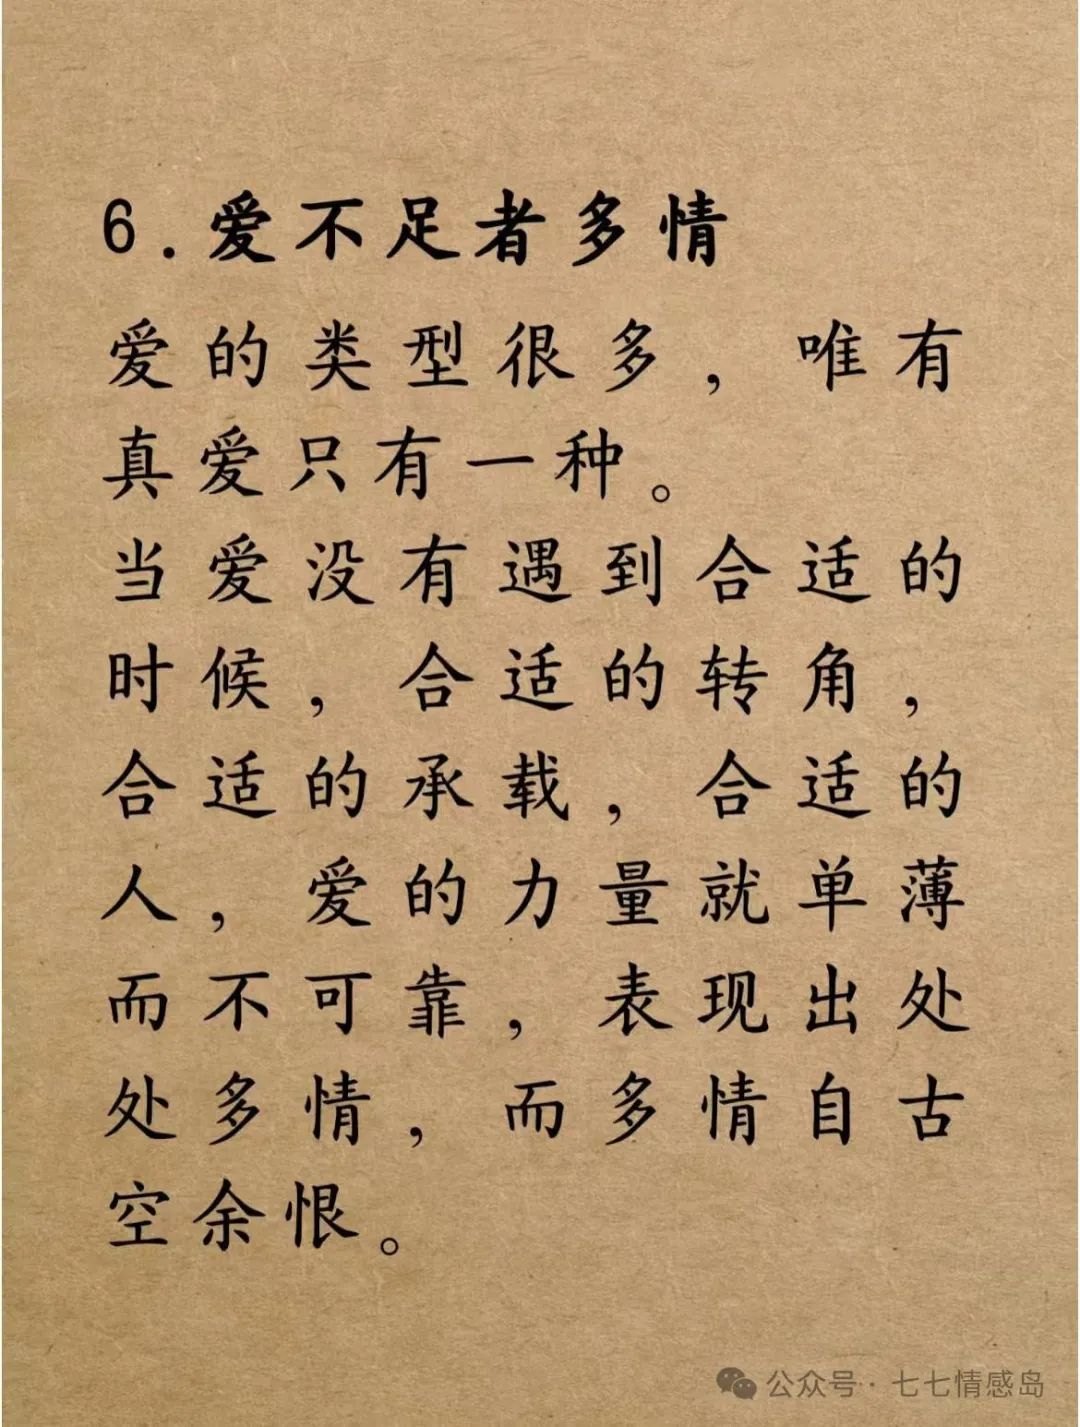 6.爱不足者多情
爱的类型很多，唯有
真爱只有一种。
当爱没有遇到合适的
时候，合适的转角，
合适的承载，合适的
人，爱的力量就单薄
而不可靠，表现出处
处多情，而多情自古
空余恨。
公众号·七七情感岛